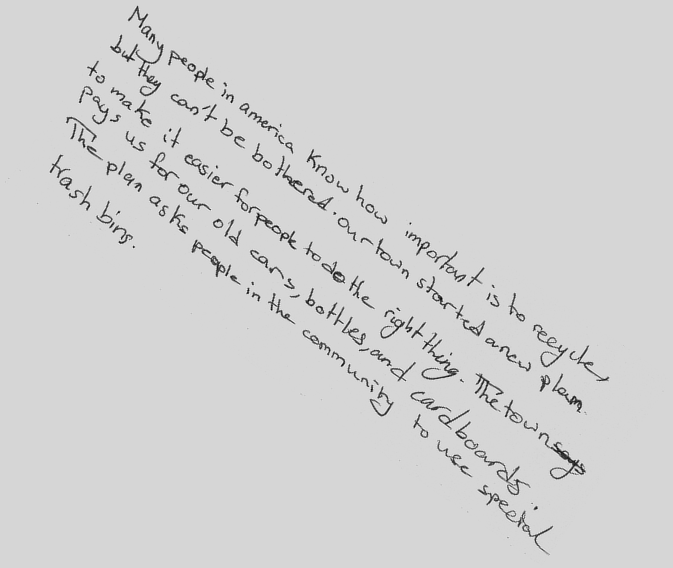 Many people in america Know how important is to recycle,
but they can't be bothered. our town started a new plan
to make it easier for people to do the right thing. The town
pays us for our old cars, bottles, and cardboards.
The plan asks people in the community to use special
trash bins.